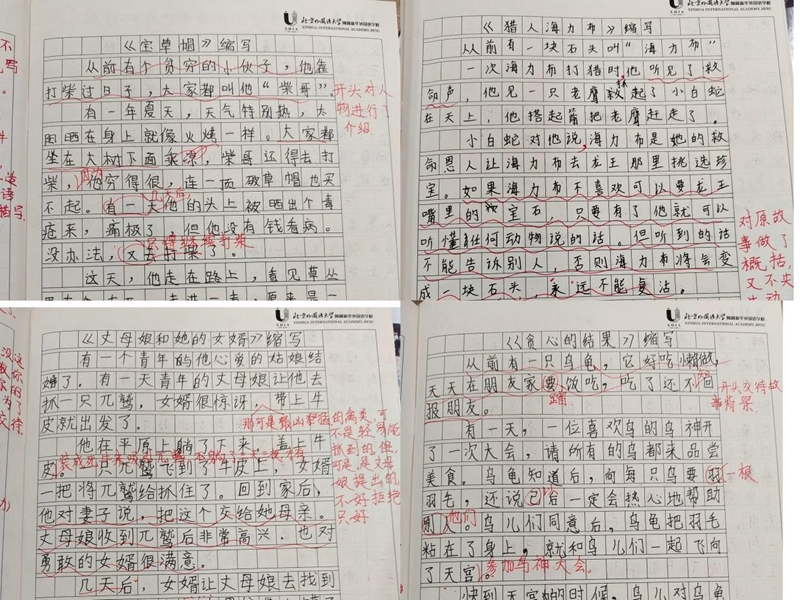 北京外国语大学
XINHUA INTERNATIONAL ACADEMY, BFSU
《宝草帽》缩写
从前有个贫穷的小伙子，他靠
打柴过日子，大家都叫他“柴哥”。
开头对人
物进行了
介绍
有一年夏天，天气特别热，太
阳晒在身上就像火烧一样。大家都
坐在大树下面乘凉，柴哥还得去打
柴，他穷得很，连一顶破草帽也买
不起。有一天他的头上被晒出个毒
疮来，痛极了，但他没有钱看病。
只得继续打柴
没办法，又去打柴了。
这天，他走在路上，看见草丛
北京外国语大学
XINHUA INTERNATIONAL ACADEMY, BFSU
《猎人海力布》缩写
从前有一块石头叫“海力布”
一次海力布打猎时他听见了救
命声，他见一只老鹰救起了小白蛇
在天上，他搭起箭把老鹰赶走了。
小白蛇对他说，海力布是她的救
命恩人让海力布去龙王那里挑选珍
宝。如果海力布不喜欢可以要龙王
嘴里的宝石，只要有了他就可以
听懂任何动物说的话。但听到的话
不能告诉别人，否则海力布将会变
成一块石头，永远不能复活。
对原故
事做了
概括，
又不失
生动
北京外国语大学
XINHUA INTERNATIONAL ACADEMY, BFSU
《丈母娘和她的女婿》缩写
有一个青年的他心爱的姑娘结
婚了。有一天青年的丈母娘让他去
抓一只兀鹫，女婿很惊讶，带上牛
皮就出发了。
他在平原上躺了下来，盖上牛
皮。一只兀鹫飞到了牛皮上，女婿
一把将兀鹫给抓住了。回到家后，
他对妻子说，把这个交给她母亲。
丈母娘收到兀鹫后非常高兴，也对
勇敢的女婿很满意。
几天后，女婿让丈母娘去找到
那可是最凶猛的禽类，可
不是轻易能
抓到的，但
可是是丈母
娘提出的
不好拒绝
只好
北京外国语大学
XINHUA INTERNATIONAL ACADEMY, BFSU
《贪心的结果》缩写
从前有一只乌龟，它好吃懒做，
天天在朋友家要饭吃，吃了还不回
报朋友。
开头交待故
事背景
有一天，一位喜欢鸟的鸟神开
了一次大会，请所有的鸟都来品尝
美食。乌龟知道后，向每只鸟要羽
一根
羽毛，还说己后一定会热心地帮助
他们
别人。鸟儿们同意后，乌龟把羽毛
粘在了身上，就和鸟儿们一起飞向
了天宫。参加鸟神大会。